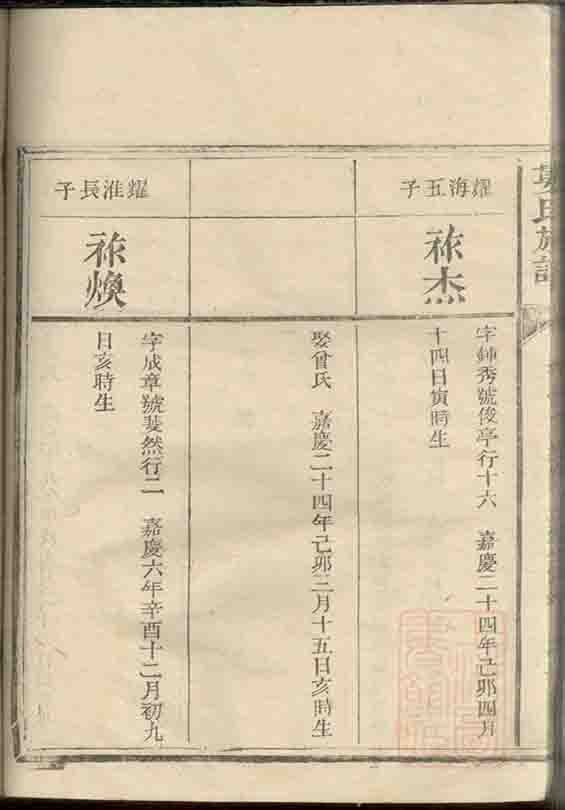 氏族譜
耀海五子
祚杰
字鍾秀號俊亭行十六 嘉慶二十四年己卯四月
十四日寅時生
娶曾氏 嘉慶二十四年己卯三月十五日亥時生
耀淮長子
祚煥
字成章號斐然行二 嘉慶六年辛酉十二月初九
日亥時生